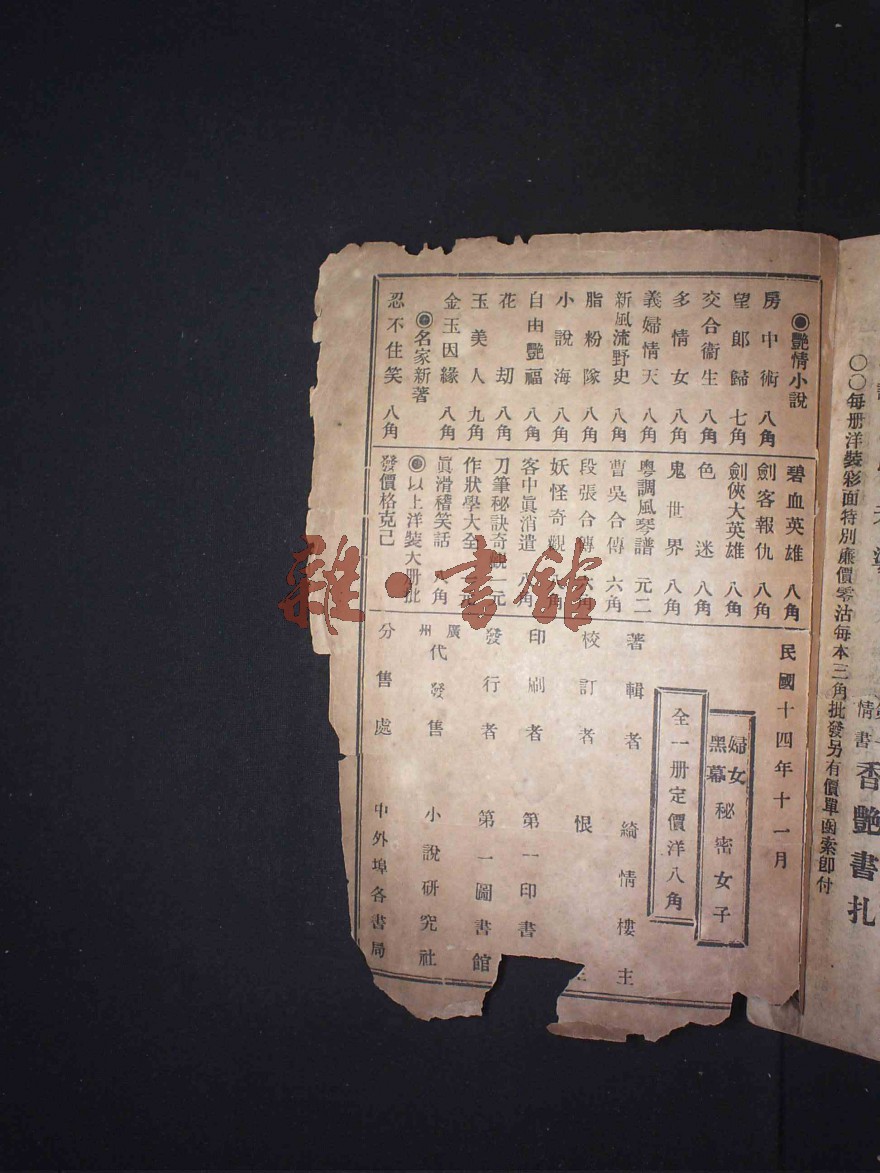 ◉艷情小說
房中術 八角
望郎歸 七角
交合衞生 八角
多情女 八角
義婦情天 八角
新風流野史 八角
脂粉隊 八角
小說海 八角
自由艷福 八角
花刧 八角
玉美人 九角
金玉因緣 八角
◉名家新著
忍不住笑 八角
碧血英雄 八角
劍客報仇 八角
劍俠大英雄 八角
色迷 八角
鬼世界 八角
粵調風琴譜 元二
曹吳合傳 六角
段張合傳 六角
妖怪奇觀 八角
客中眞消遣 八角
刀筆秘訣奇觀 一元
作狀學大全
眞滑稽笑話 八角
◉以上洋裝大册批
發價格克己
民國十四年十一月
婦女黑幕 秘密女子
全一册定價洋八角
著輯者 綺情樓主
校訂者 恨
印刷者 第一印書
發行者 第一圖書館
廣州代發售 小說研究社
分售處 中外埠各書局
雜·書館
〇〇每册洋裝彩面特別廉價零沽每本三角批發另有價單函索卽付
情書 香艷書扎